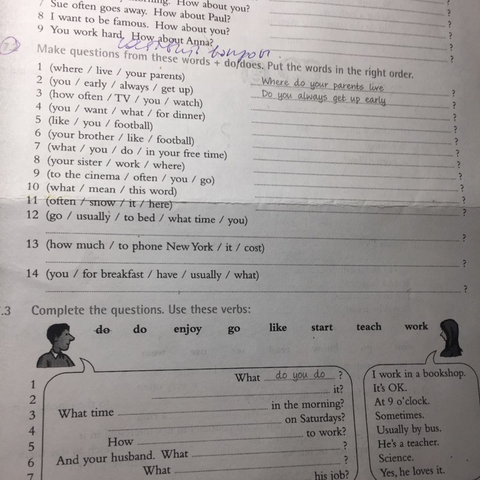 7 Sue often goes away. How about Paul?
8 I want to be famous. How about you?
9 You work hard. How about Anna?
?
?
?
Make questions from these words + do/does. Put the words in the right order.
1 (where / live / your parents) Where do your parents live ?
2 (you / early / always / get up) Do you always get up early ?
3 (how often / TV / you / watch) ?
4 (you / want / what / for dinner) ?
5 (like / you / football) ?
6 (your brother / like / football) ?
7 (what / you / do / in your free time) ?
8 (your sister / work / where) ?
9 (to the cinema / often / you / go) ?
10 (what / mean / this word) ?
11 (often / snow / it / here) ?
12 (go / usually / to bed / what time / you)
?
13 (how much / to phone New York / it / cost)
?
14 (you / for breakfast / have / usually / what)
?
.3 Complete the questions. Use these verbs:
do do enjoy go like start teach work
1 What do you do ?
2 it?
3 What time in the morning?
4 on Saturdays?
5 How to work?
6 And your husband. What ?
What ?
7 his job?
I work in a bookshop.
It's OK.
At 9 o'clock.
Sometimes.
Usually by bus.
He's a teacher.
Science.
Yes, he loves it.